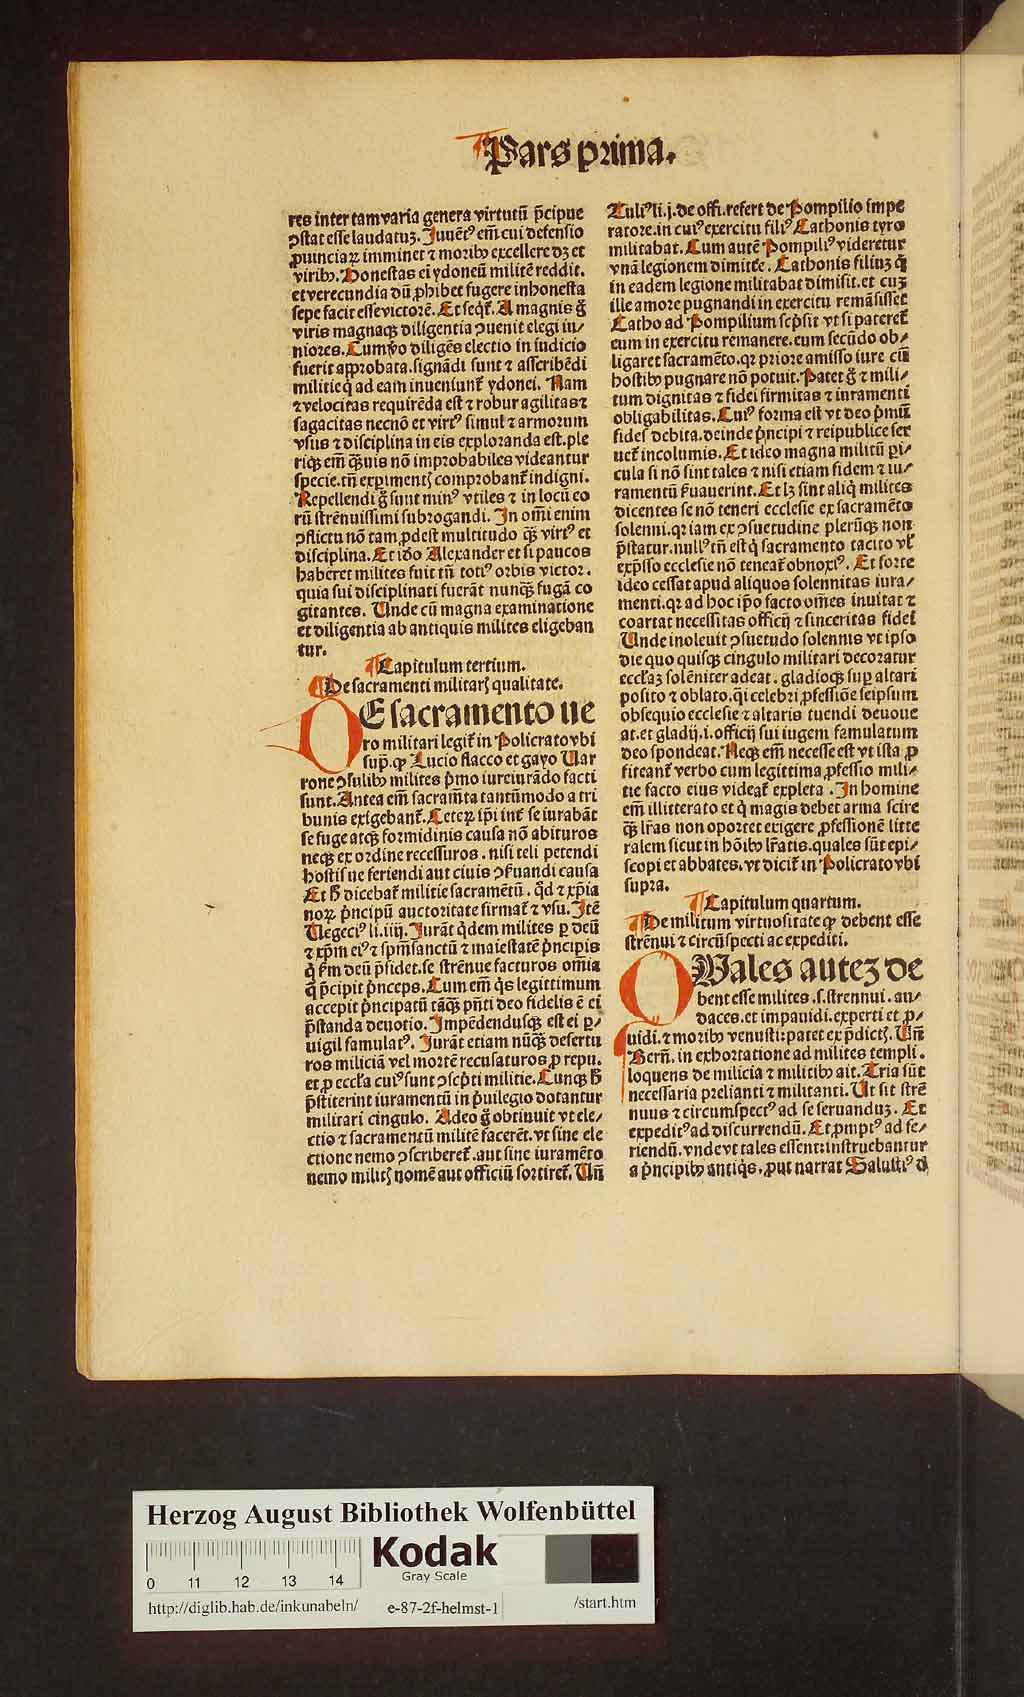 Pars prima.
res inter tam varia genera virtutū p̄cipue
ↄstat esse laudatuꝫ. Juuēt⁹ em̄ cui defensio
ꝓuinciaꝝ imminet ⁊ moribꝰ excellere dꝫ et
viribꝰ. Honestas ei ydoneū militē reddit.
et verecundia dū ꝓhibet fugere inhonesta
sepe facit esse victorē. Et seqt̄. A magnis g̊
viris magnaqꝫ diligentia ↄuenit elegi iu⸗
niores. Cum v̊o diligēs electio in iudicio
fuerit approbata. signādi sunt ⁊ asscribēdi
militie q̇ ad eam inueniunt̄ ydonei. Nam
⁊ velocitas requirēda est ⁊ robur agilitas ⁊
sagacitas necnō et virt⁹ simul ⁊ armorum
vsus ⁊ disciplina in eis exploranda est. ple
riqꝫ em̄ qꝫuis nō improbabiles videantur
specie. tn̄ exꝑimentꝭ comprobant̄ indigni.
Repellendi g̊ sunt min⁹ vtiles ⁊ in locū eo
rū strēnuissimi subrogandi. In om̄i enim
ↄflictu nō tam ꝓdest multitudo qꝫ̄ virt⁹ et
disciplina. Et iđo Alexander et si paucos
haberet milites fuit tn̄ toti⁹ orbis victor.
quia sui disciplinati fuerāt nunqꝫ̄ fugā co
gitantes. Unde cū magna examinatione
et diligentia ab antiquis milites eligeban
tur.
Capitulum tertium.
De sacramenti militarꝭ qualitate.
DE sacramento ve
ro militari legit̄ in Policrato vbi
supꝰ. ꝙ Lucio flacco et gayo Uar
rone ↄsulibꝰ milites p̄mo iureiurādo facti
sunt. Antea em̄ sacram̄ta tantūmodo a tri
bunis exigebant̄. Ceteꝝ ip̄i int̄ se iurabāt
se fuge atqꝫ formidinis causa nō abituros
neqꝫ ex ordine recessuros. nisi teli petendi
hostisue feriendi aut ciuis ↄẜuandi causa
Et h̄ dicebat̄ militie sacramētū. qd̄ ⁊ xp̄ia
noꝝ p̄ncipū auctoritate firmat̄ ⁊ vsu. Itē
Uegeci⁹ li. iiij. Jurāt qͥdem milites ꝑ deū
⁊ xp̄m ei⁹ ⁊ spm̄ sanctū ⁊ maiestatē p̄ncipis
q̇ ẜm deū p̄sidet. se strēnue facturos om̄ia
q̄ p̄cipit p̄nceps. Cum em̄ qͥs legittimum
accepit p̄ncipatū tāqꝫ̄ pn̄ti deo fidelis ē ei
p̄standa deuotio. Impēdendusqꝫ̄ est ei ꝑ⸗
uigil famulat⁹. Jurāt etiam nūqꝫ̄ desertu
ros miliciā vel mortē recusaturos ꝓ repu.
et ꝓ eccl̄a cui⁹ sunt ↄsc̄pti militie. Cunqꝫ h̄
p̄stiterint iuramentū in p̄uilegio dotantur
militari cingulo. Adeo g̊ obtinuit vt ele⸗
ctio ⁊ sacramentū militē facerēt. vt sine ele
ctione nemo ↄscriberet̄. aut sine iuramēto
nemo militꝭ nomē aut officiū sortiret̄. Un̄
Tuli⁹ li. j. de offi. refert de Pompilio impe
ratore. in cui⁹ exercitu fili⁹ Cathonis tyro
militabat. Cum autē Pompili⁹ videretur
vnā legionem dimittē. Cathonis filiuꝫ q̇
in eadem legione militabat dimisit. et cuꝫ
ille amore pugnandi in exercitu remāsisset
Catho ad Pompilium scp̄sit vt si pateret̄
eum in exercitu remanere. eum secūdo ob⸗
ligaret sacramēto. qꝛ priore amisso iure cū
hostibꝰ pugnare nō potuit. Patet g̊ ⁊ mili⸗
tum dignitas ⁊ fidei firmitas ⁊ iuramenti
obligabilitas. Cui⁹ forma est vt deo p̄mū
fides debita. deinde p̄ncipi ⁊ reipublice ser
uet̄ incolumis. Et ideo magna militū ꝑi⸗
cula si nō sint tales ⁊ nisi etiam fidem ⁊ iu⸗
ramentū ẜuauerint. Et lꝫ sint aliq̇ milites
dicentes se nō teneri ecclesie ex sacramēto
solenni. qꝛ iam ex ↄsuetudine plerūqꝫ non
p̄statur. null⁹ tn̄ est q̇ sacramento tacito vl̄
exp̄sso ecclesie nō teneat̄ obnoxi⁹. Et forte
ideo cessat apud aliquos solennitas iura⸗
menti. qꝛ ad hoc ip̄o facto om̄es inuitat ⁊
coartat necessitas officij ⁊ sinceritas fidei
Unde inoleuit ↄsuetudo solennis vt ipso
die quo quisqꝫ cingulo militari decoratur
eccl̄iaꝫ solēniter adeat. gladioqꝫ suꝑ altari
posito ⁊ oblato. q̇si celebri ꝓfessiōe seipsum
obsequio ecclesie ⁊ altaris tuendi deuoue
at. et gladij. i. officij sui iugem famulatum
deo spondeat. Neqꝫ em̄ necesse est vt ista ꝓ
fiteant̄ verbo cum legittima ꝓfessio mili⸗
tie facto eius videat̄ expleta. In homine
em̄ illitterato et q̇ magis debet arma scire
qꝫ̄ lr̄as non oportet exigere ꝓfessionē litte
ralem sicut in hōibꝰ lr̄atis. quales sūt epi⸗
scopi et abbates. vt dicit̄ in Policrato vbi
supra.
Capitulum quartum.
De militum virtuositate ꝙ debent esse
strēnui ⁊ circūspecti ac expediti.
QUales auteꝫ de
bent esse milites. s. strennui. au⸗
daces. et impauidi. experti et ꝓ⸗
uidi. ⁊ moribꝰ venusti: patet ex p̄dictꝭ. Un̄
Bern̄. in exhortatione ad milites templi.
loquens de milicia ⁊ militibꝰ ait. Tria sūt
necessaria prelianti ⁊ militanti. Ut sit strē
nuus ⁊ circumspect⁹ ad se seruanduꝫ. Et
expedit⁹ ad discurrendū. Et ꝓmpt⁹ ad fe⸗
riendū. vnde vt tales essent: instruebantur
a p̄ncipibꝰ antiqͥs. ꝓut narrat Salusti⁹ đ
Herzog August Bibliothek Wolfenbüttel
Kodak
Gray Scale
0 11 12 13 14
http://diglib.hab.de/inkunabeln/ e-87-2f-helmst-1 /start.htm